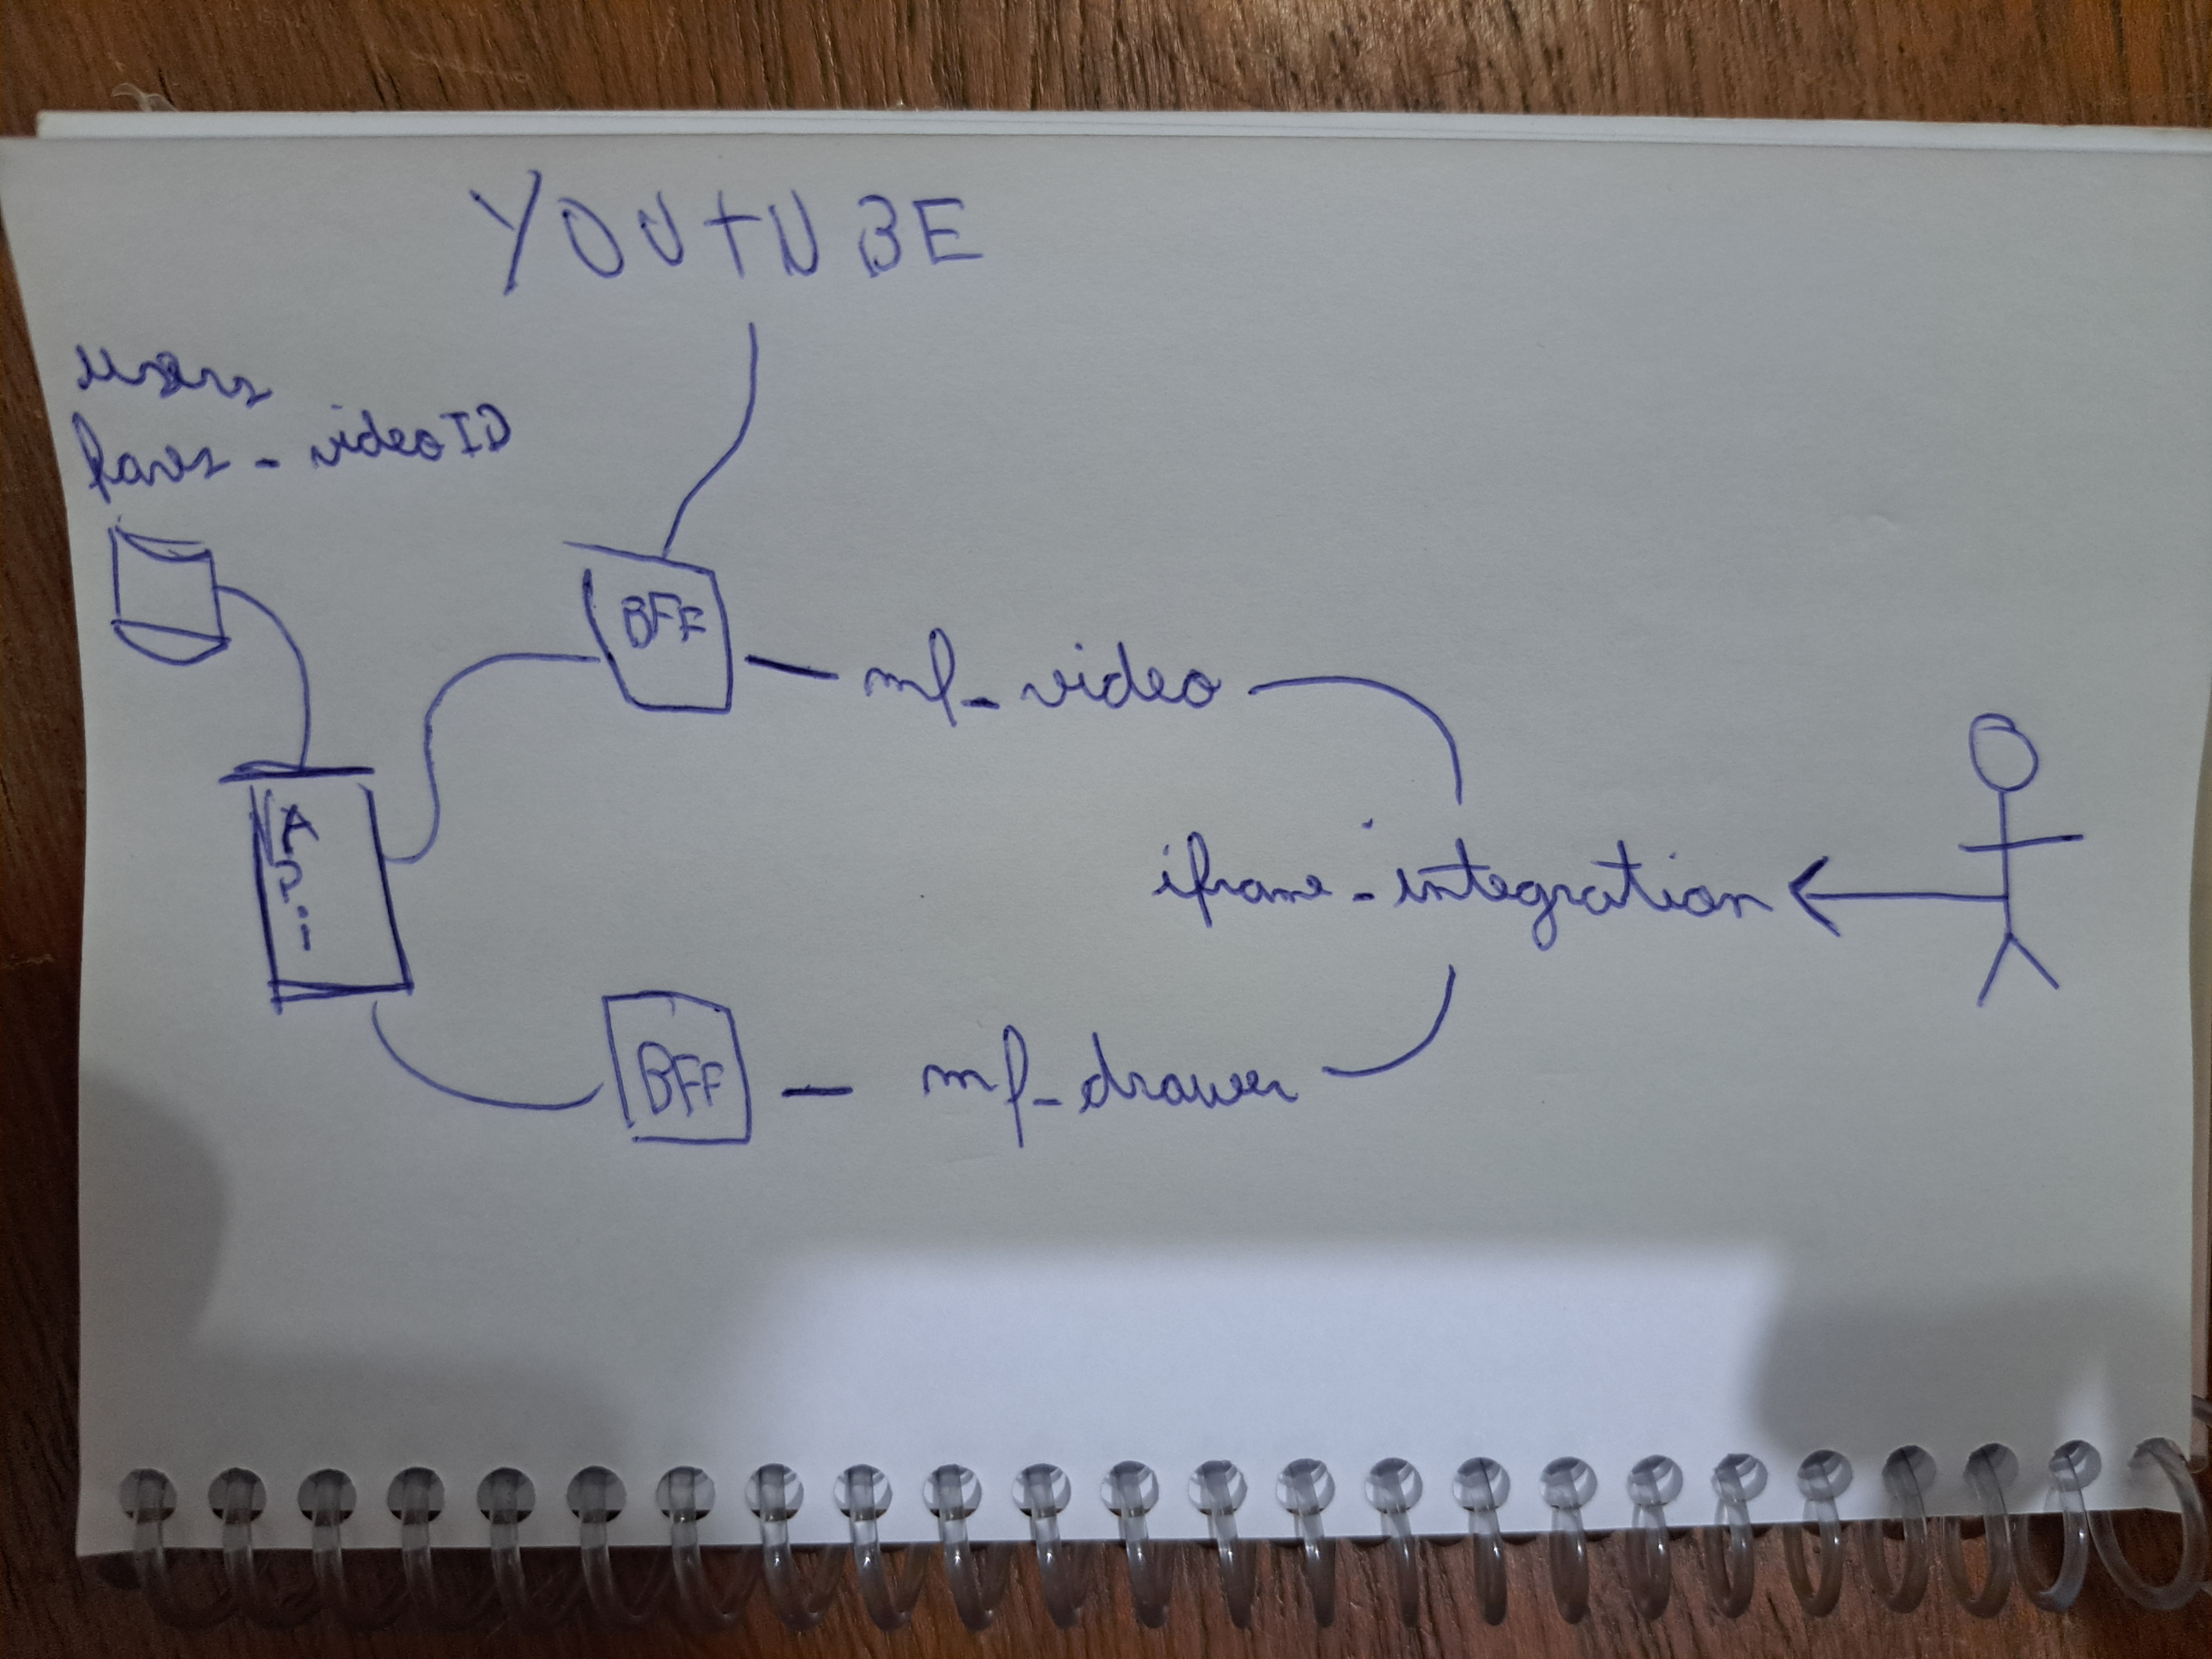 YOUtUBE
users
favs - videoID
BFF
mf-video
API
iframe-integration
BFF
mf-drawer